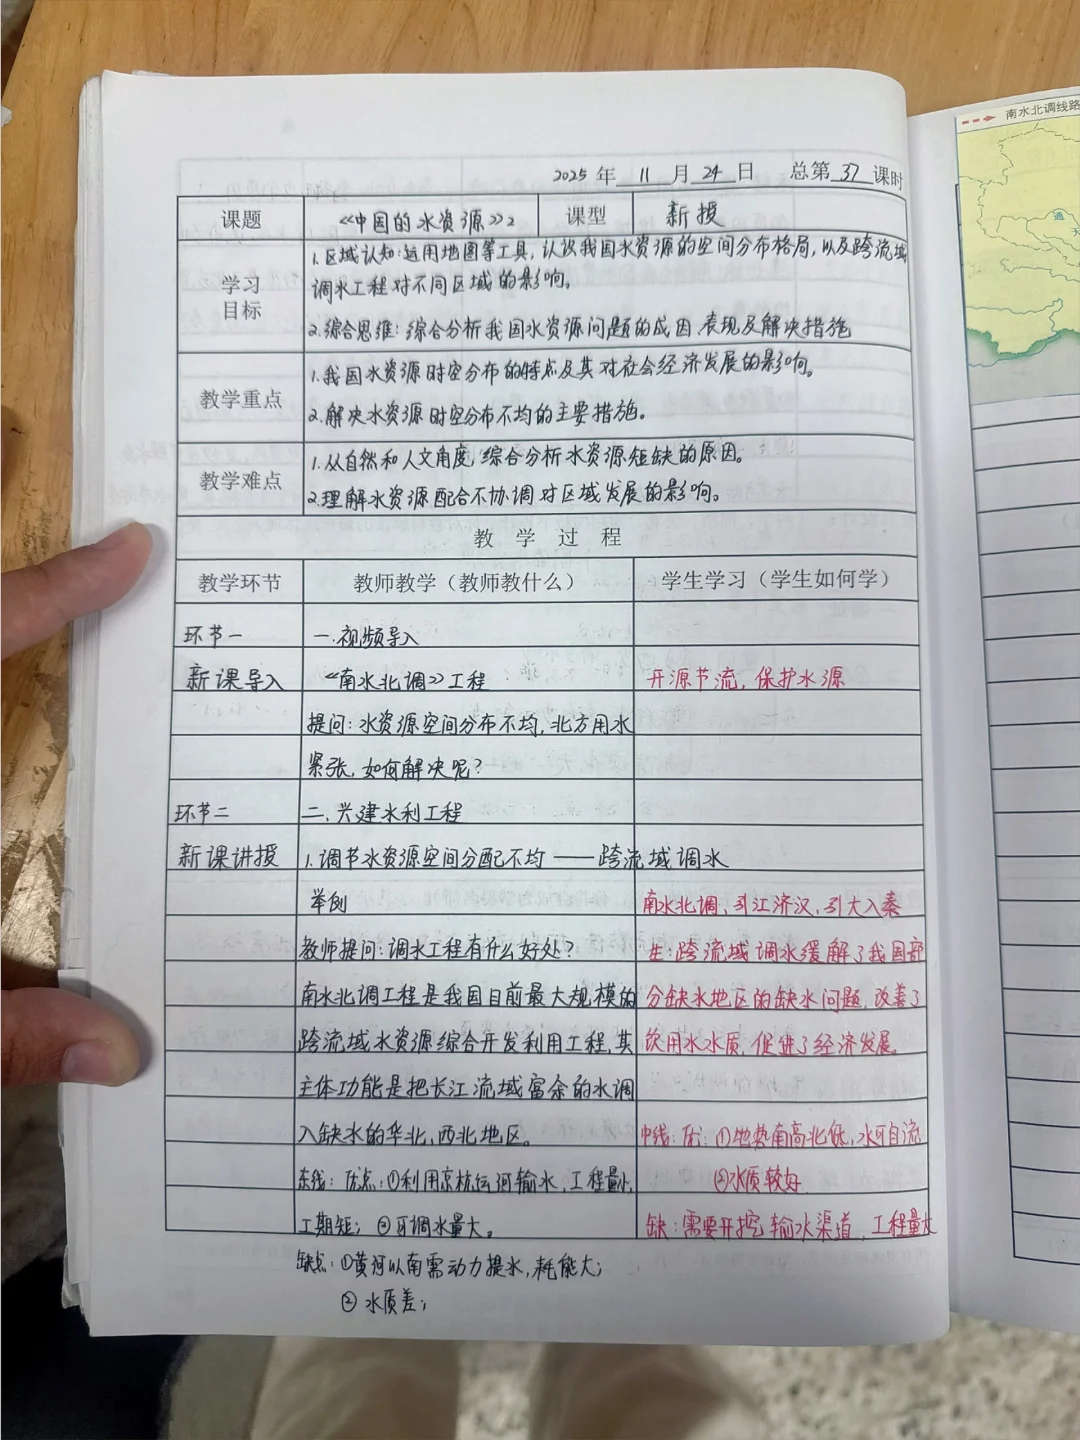 南水北调线路
通
2025 年 11 月 24 日 总第 37 课时
课题 《中国的水资源》2 课型 新授
学习目标
1.区域认知:运用地图等工具,认识我国水资源的空间分布格局,以及跨流域
调水工程对不同区域的影响。
2.综合思维:综合分析我国水资源问题的成因、表现及解决措施
教学重点
1.我国水资源时空分布的特点及其对社会经济发展的影响。
2.解决水资源时空分布不均的主要措施。
教学难点
1.从自然和人文角度,综合分析水资源短缺的原因。
2.理解水资源配合不协调对区域发展的影响。
教 学 过 程
教学环节 教师教学(教师教什么) 学生学习(学生如何学)
环节一 一.视频导入
新课导入 《南水北调》工程 开源节流,保护水源
提问:水资源空间分布不均,北方用水
紧张,如何解决呢?
环节二 二.兴建水利工程
新课讲授 1.调节水资源空间分配不均——跨流域调水
举例 南水北调、引江济汉、引大入秦
教师提问:调水工程有什么好处? 生:跨流域调水缓解了我国部
南水北调工程是我国目前最大规模的 分缺水地区的缺水问题,改善了
跨流域水资源综合开发利用工程,其 饮用水水质,促进了经济发展。
主体功能是把长江流域富余的水调
入缺水的华北,西北地区。 中线:优:①地势南高北低,水可自流
东线:优点:①利用京杭运河输水,工程量小, ②水质较好
工期短;②可调水量大。 缺:需要开挖输水渠道,工程量大
缺点:①黄河以南需动力提水,耗能大;
②水质差;